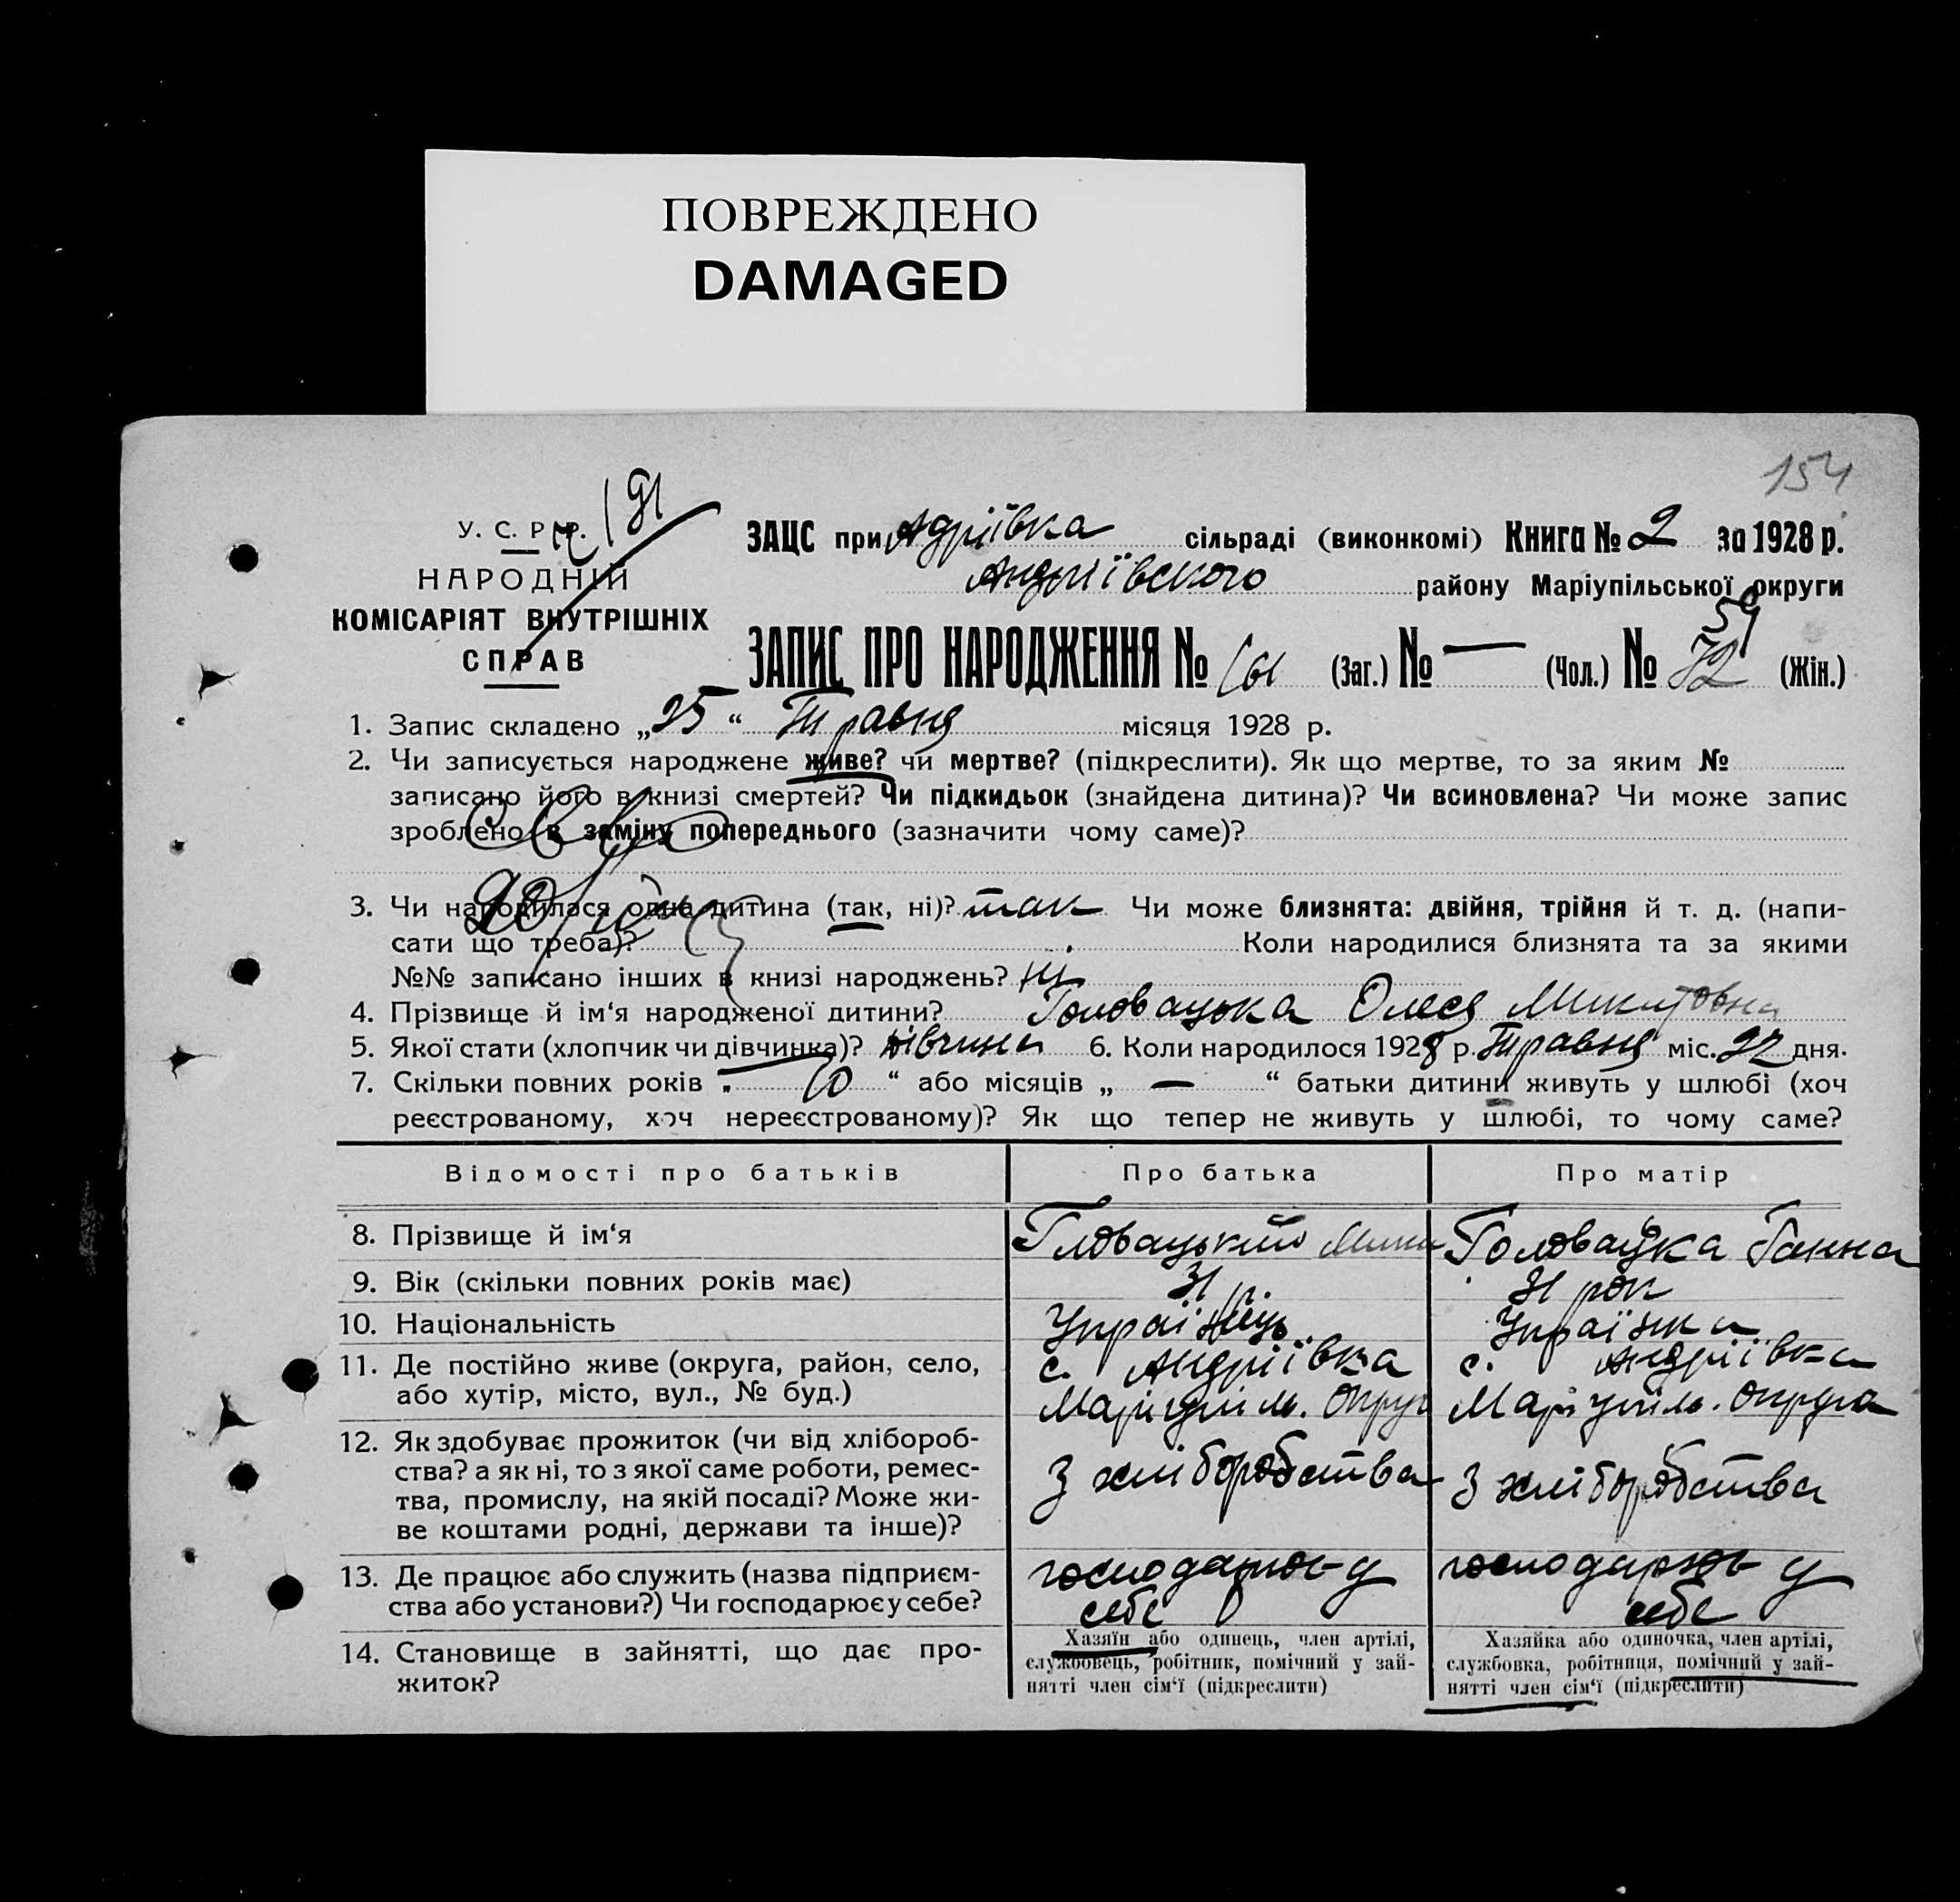 ПОВРЕЖДЕНО
DAMAGED
154
У. С. Р. Р.
НАРОДНІЙ
КОМІСАРІЯТ ВНУТРІШНІХ
СПРАВ
ЗАЦС при Адріївка сільраді (виконкомі) Книга № 2 за 1928 р.
Андріївского району Маріупільської округи
54
ЗАПИС ПРО НАРОДЖЕННЯ № (Заг.) № — (Чол.) № 72 (Жін.)
1. Запис складено „25“ Травня місяця 1928 р.
2. Чи записується народжене живе? чи мертве? (підкреслити). Як що мертве, то за яким №
записано його в книзі смертей? Чи підкидьок (знайдена дитина)? Чи всиновлена? Чи може запис
зроблено в заміну попереднього (зазначити чому саме)?
3. Чи народилася одна дитина (так, ні)? так Чи може близнята: двійня, трійня й т. д. (напи-
сати що треба)? Коли народилися близнята та за якими
№№ записано інших в книзі народжень? ні
4. Прізвище й ім‘я народженої дитини? Головацька Олеся Микитовна
5. Якої стати (хлопчик чи дівчинка)? дівчина 6. Коли народилося 1928 р. Травня міс. 22 дня.
7. Скільки повних років „ 10 “ або місяців „ — “ батьки дитини живуть у шлюбі (хоч
реєстрованому, хоч нереєстрованому)? Як що тепер не живуть у шлюбі, то чому саме?
Відомості про батьків Про батька Про матір
8. Прізвище й ім‘я Гловацький Головацка Ганна
9. Вік (скільки повних років має) 31 р. 31 рок
10. Національність Українець Українка
11. Де постійно живе (округа, район, село, с. Андріївка с. Андріївка
або хутір, місто, вул., № буд.) Маріупіль. Округ Маріупіль. округа
12. Як здобуває прожиток (чи від хлібороб-
ства? а як ні, то з якої саме роботи, ремес- З хліборобства З хліборобства
тва, промислу, на якій посаді? Може жи-
ве коштами родні, держави та інше)?
13. Де працює або служить (назва підприєм- господарює у господарює у
ства або установи?) Чи господарює у себе? себе себе
14. Становище в зайнятті, що дає про-
житок?
Хазяїн або одинець, член артілі,
службовець, робітник, помічний у зай-
нятті член сім‘ї (підкреслити)
Хазяйка або одиночка, член артілі,
службовка, робітниця, помічний у зай-
нятті член сім‘ї (підкреслити)